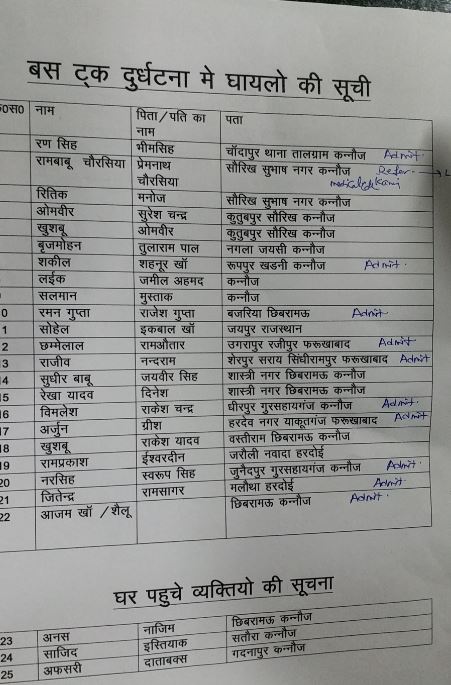 बस ट्क दुर्धटना मे घायलो की सूची
0स0 नाम पिता/पति का नाम पता
रण सिह भीमसिह चॉदापुर थाना तालग्राम कन्नौज Admit.
रामबाबू चौरसिया प्रेमनाथ चौरसिया सौरिख सुभाष नगर कन्नौज Refer
रितिक मनोज सौरिख सुभाष नगर कन्नौज
ओमवीर सुरेश चन्द्र कुतुबपुर सौरिख कन्नौज
खुशबू ओमवीर कुतुबपुर सौरिख कन्नौज
बृजमोहन तुलाराम पाल नगला जयसी कन्नौज
शकील शहनूर खॉ रूपपुर खडनी कन्नौज Admit.
लईक जमील अहमद कन्नौज
सलमान मुस्ताक कन्नौज
0 रमन गुप्ता राजेश गुप्ता बजरिया छिबरामऊ Admit.
1 सोहेल इकबाल खॉ जयपुर राजस्थान
2 छम्मेलाल रामऔतार उगरापुर रजीपुर फरूखाबाद Admit.
3 राजीव नन्दराम शेरपुर सराय सिंधीरामपुर फरूखाबाद Admit
14 सुधीर बाबू जयवीर सिह शास्त्री नगर छिबरामऊ कन्नौज
15 रेखा यादव दिनेश शास्त्री नगर छिबरामऊ कन्नौज
16 विमलेश राकेश चन्द्र धीरपुर गुरसहायगंज कन्नौज Admit.
17 अर्जुन ग्रीश हरदेव नगर याकूतगंज फरूखाबाद Admit
18 खुशबू राकेश यादव वस्तीराम छिबरामऊ कन्नौज
19 रामप्रकाश ईश्वरदीन जरौली नवादा हरदोई
20 नरसिह स्वरूप सिह जुनैदपुर गुरसहायगंज कन्नौज Admit.
21 जितेन्द्र रामसागर मलौथा हरदोई Admit.
22 आजम खॉ /शैलू छिबरामऊ कन्नौज Admit.
घर पहुचे व्यक्तियो की सूचना
23 अनस नाजिम छिबरामऊ कन्नौज
24 साजिद इस्तियाक सतौरा कन्नौज
25 अफसरी दाताबक्स गदनापुर कन्नौज